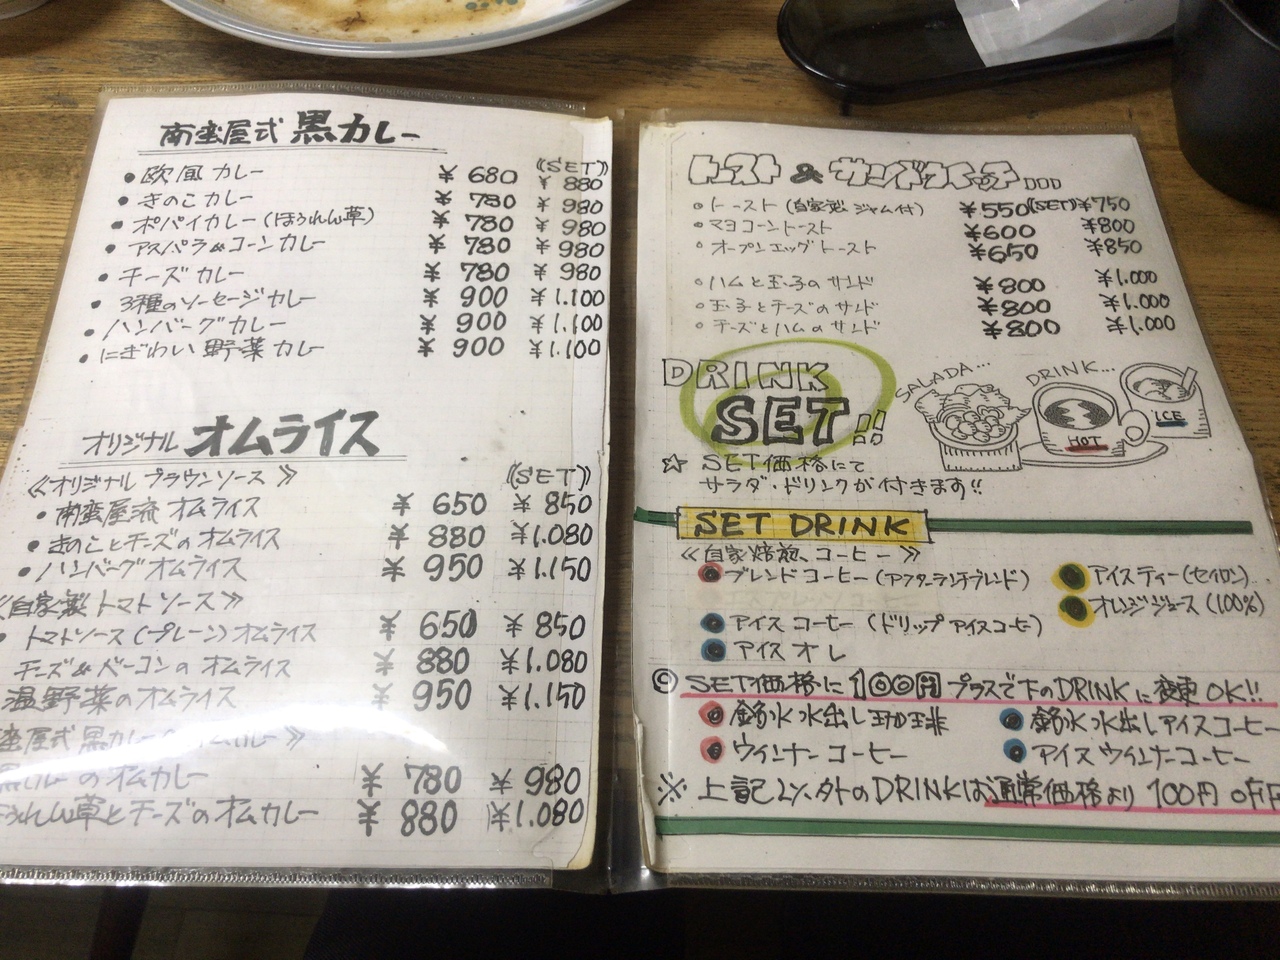 南蛮屋式 黒カレー
((SET))
• 欧風カレー ¥680 ¥880
• きのこカレー ¥780 ¥980
• ポパイカレー(ほうれん草) ¥780 ¥980
• アスパラ&コーンカレー ¥780 ¥980
• チーズカレー ¥780 ¥980
• 3種のソーセージカレー ¥900 ¥1.100
• ハンバーグカレー ¥900 ¥1.100
• にぎわい野菜カレー ¥900 ¥1.100
オリジナル オムライス
≪オリジナル ブラウンソース≫ ((SET))
• 南蛮屋流 オムライス ¥650 ¥850
• きのことチーズのオムライス ¥880 ¥1.080
• ハンバーグオムライス ¥950 ¥1.150
≪自家製トマトソース≫
• トマトソース(プレーン)オムライス ¥650 ¥850
チーズ&ベーコンのオムライス ¥880 ¥1.080
温野菜のオムライス ¥950 ¥1.150
蛮屋式黒カレー カレー≫
のオムカレー ¥780 ¥980
ほうれん草とチーズのオムカレー ¥880 ¥1.080
トースト & サンドウィッチ...
• トースト (自家製ジャム付) ¥550 (SET) ¥750
• マヨコーントースト ¥600 ¥800
• オープンエッグトースト ¥650 ¥850
• ハムと玉子のサンド ¥800 ¥1.000
• 玉子とチーズのサンド ¥800 ¥1.000
• チーズとハムのサンド ¥800 ¥1.000
DRINK
SET!!
SALADA...
DRINK...
HOT
ICE
☆ SET価格にて
サラダ・ドリンクが付きます!!
SET DRINK
≪自家焙煎コーヒー≫
● ブレンドコーヒー(アフターランチブレンド)
● アイスティー(セイロン)
● オレンジジュース(100%)
● アイスコーヒー(ドリップアイスコーヒー)
● アイスオレ
◎SET価格に100円プラスで下のDRINKに変更OK!!
● 銘水水出し珈琲
● 銘水水出しアイスコーヒー
● ウィンナーコーヒー
● アイスウィンナーコーヒー
※上記以外のDRINKは通常価格より100円OFF